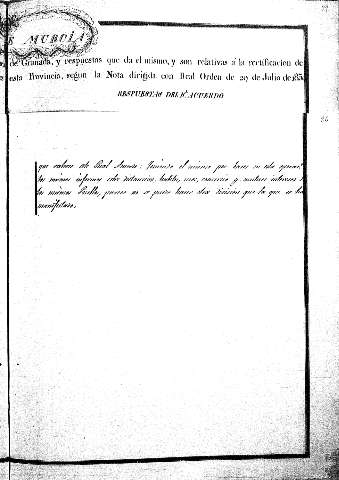 E MURCIA
de Granada, y respuestas que da el mismo, y son relativas á la rectificacion de
esta Provincia, segun la Nota dirigida con Real Orden de 29 de Julio de 183
RESPUESTAS DEL Rl. ACUERDO
que este Real Acuerdo: Teniendo el mismo por bases en esta
los mismos informes sobre distancias, usos, comercio y mutuos intereses
los mismos Pueblos, parece no se puede hacer otra division que la que se ha
manifestado.